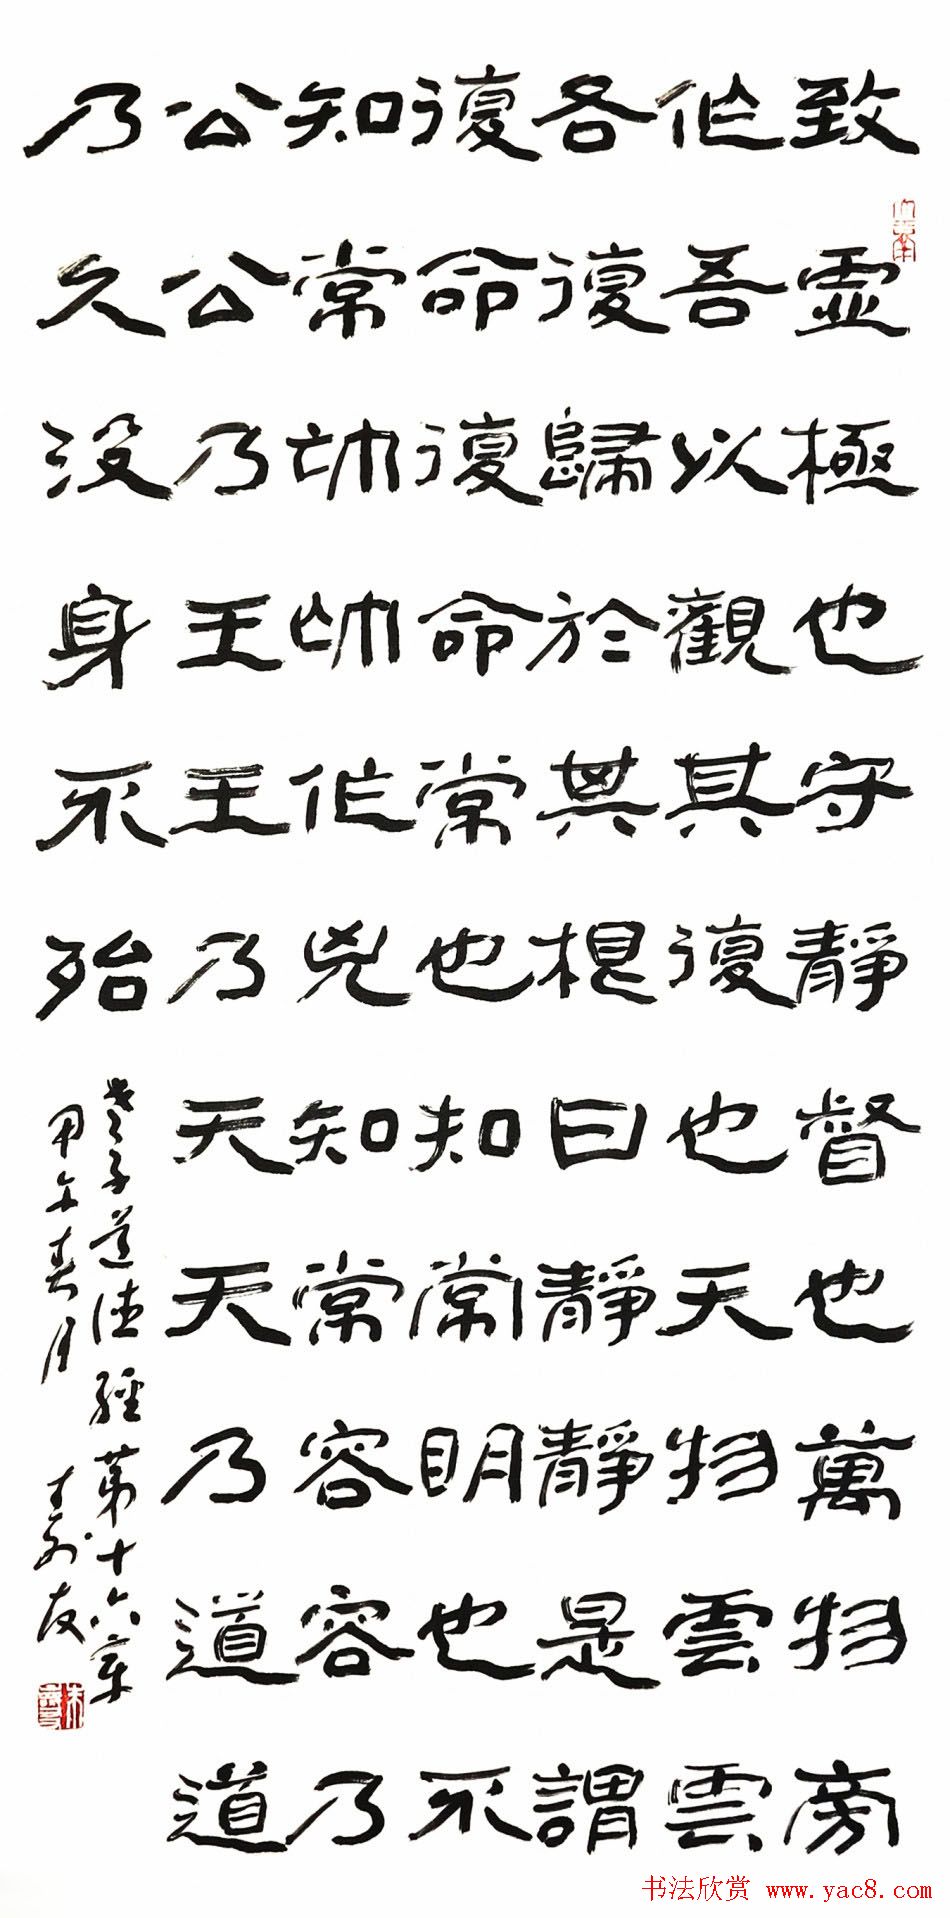 致虛極也守靜督也萬物旁
作吾以觀其復也天物雲雲
各復歸於其根曰靜靜是謂
復命復命常也知常明也不
知常作兇知常容容乃
公公乃王王乃天天乃道道
乃久没身不殆
老子道德經第十六章
甲午春月
书法欣赏 www.yac8.com